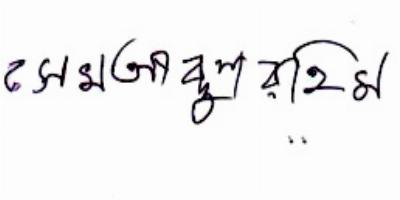 আবুল রহিম